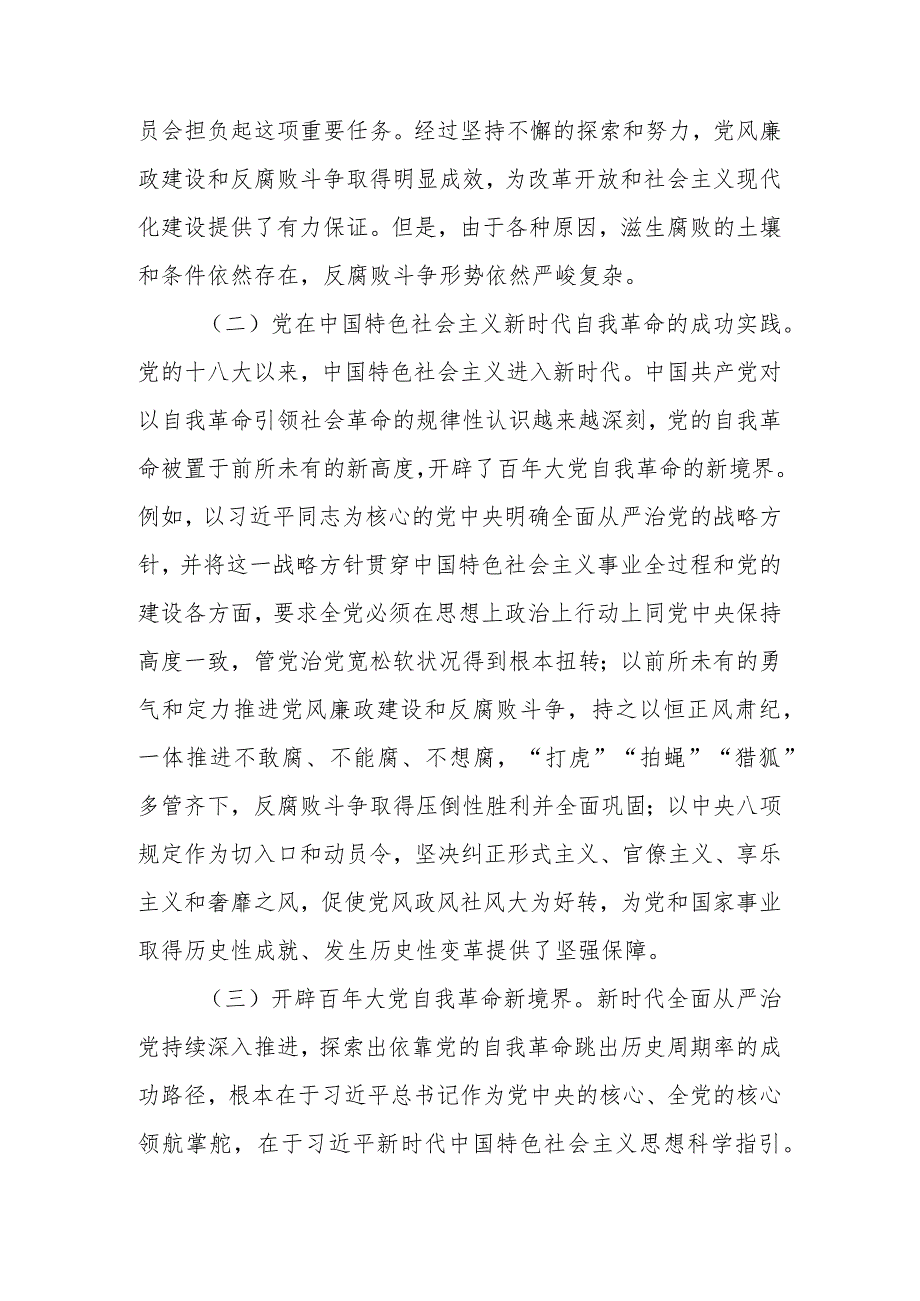 员会担负起这项重要任务。经过坚持不懈的探索和努力，党风廉
政建设和反腐败斗争取得明显成效，为改革开放和社会主义现代
化建设提供了有力保证。但是，由于各种原因，滋生腐败的土壤
和条件依然存在，反腐败斗争形势依然严峻复杂。
（二）党在中国特色社会主义新时代自我革命的成功实践。
党的十八大以来，中国特色社会主义进入新时代。中国共产党对
以自我革命引领社会革命的规律性认识越来越深刻，党的自我革
命被置于前所未有的新高度，开辟了百年大党自我革命的新境界。
例如，以习近平同志为核心的党中央明确全面从严治党的战略方
针，并将这一战略方针贯穿中国特色社会主义事业全过程和党的
建设各方面，要求全党必须在思想上政治上行动上同党中央保持
高度一致，管党治党宽松软状况得到根本扭转；以前所未有的勇
气和定力推进党风廉政建设和反腐败斗争，持之以恒正风肃纪，
一体推进不敢腐、不能腐、不想腐，“打虎”“拍蝇”“猎狐”
多管齐下，反腐败斗争取得压倒性胜利并全面巩固；以中央八项
规定作为切入口和动员令，坚决纠正形式主义、官僚主义、享乐
主义和奢靡之风，促使党风政风社风大为好转，为党和国家事业
取得历史性成就、发生历史性变革提供了坚强保障。
（三）开辟百年大党自我革命新境界。新时代全面从严治
党持续深入推进，探索出依靠党的自我革命跳出历史周期率的成
功路径，根本在于习近平总书记作为党中央的核心、全党的核心
领航掌舵，在于习近平新时代中国特色社会主义思想科学指引。